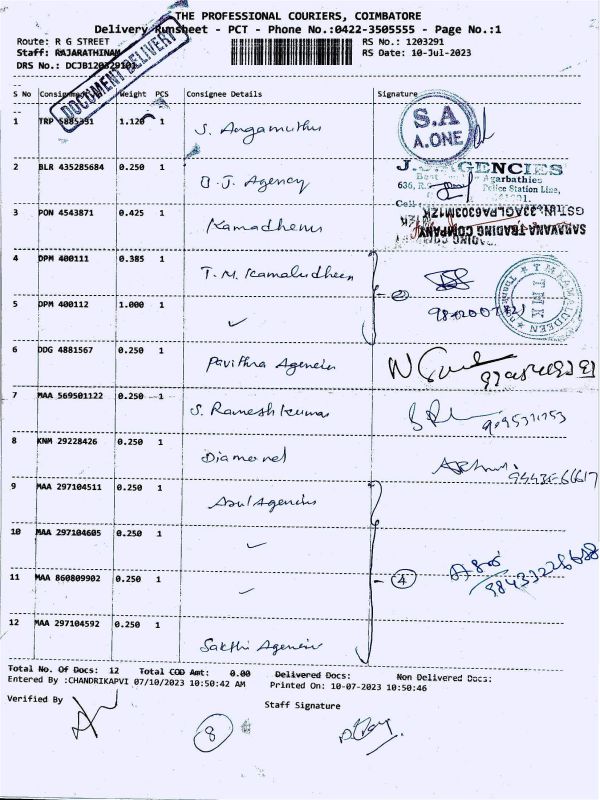 THE PROFESSIONAL COURIERS, COIMBATORE
Delivery Runsheet - PCT - Phone No.:0422-3505555 - Page No.:1
Route: R G STREET RS No.: 1203291
Staff: RAJARATHINAM RS Date: 10-Jul-2023
DRS No.: DCJB120329101
DOCUMENT DELIVERY
S No Consignment No Weight PCS Consignee Details Signature
1 TRP 5885391 1.120 1 S. Angamuthu
S.A
A.ONE
2 BLR 435285684 0.250 1 B. J. Agency
AGENCIES
Agarbathies
636, Police Station Line,
3 PON 4543871 0.425 1 Kamadhenu
GSTIN. 33AGLPA6303M1ZK
SARAVANA TRADING COMPANY
4 DPM 400111 0.385 1 T. M. Kamaludheen
2
T M KAMALUDEEN
TMK
5 DPM 400112 1.000 1 ✓
6 DDG 4881567 0.250 1 Pavithra Agencies
7 MAA 569501122 0.250 1 S. Ramesh kumar
8 KNM 29228426 0.250 1 Diamond
9 MAA 297104511 0.250 1 Agencies
10 MAA 297104605 0.250 1 ✓
11 MAA 860809902 0.250 1 ✓
4
12 MAA 297104592 0.250 1 Sakthi Agencies
Total No. Of Docs: 12 Total COD Amt: 0.00 Delivered Docs: Non Delivered Docs:
Entered By :CHANDRIKAPVI 07/10/2023 10:50:42 AM Printed On: 10-07-2023 10:50:46
Verified By Staff Signature
8